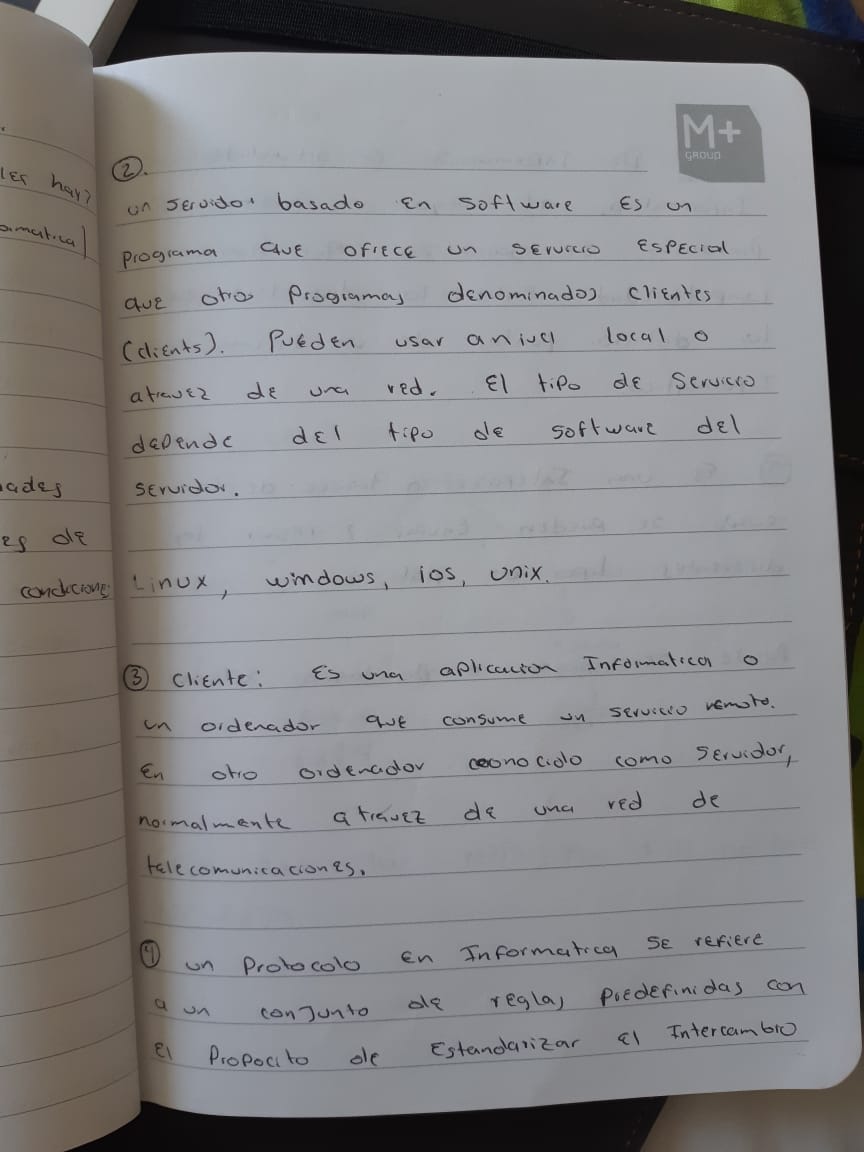 M+
GROUP
les hay?
②.
un servidor basado en software es un
programa que ofrece un servicio especial
que otros programas denominados clientes
(clients). Pueden usar a nivel local o
atravez de una red. El tipo de servicio
depende del tipo de software del
servidor.
es de
condicione
Linux, windows, ios, unix.
③ cliente: Es una aplicacion Informatica o
un ordenador que consume un servicio remoto.
En otro ordenador conocido como servidor,
normalmente atravez de una red de
telecomunicaciones.
④ un Protocolo en Informatica se refiere
a un conjunto de reglas predefinidas con
el Propocito de Estandarizar el Intercambio